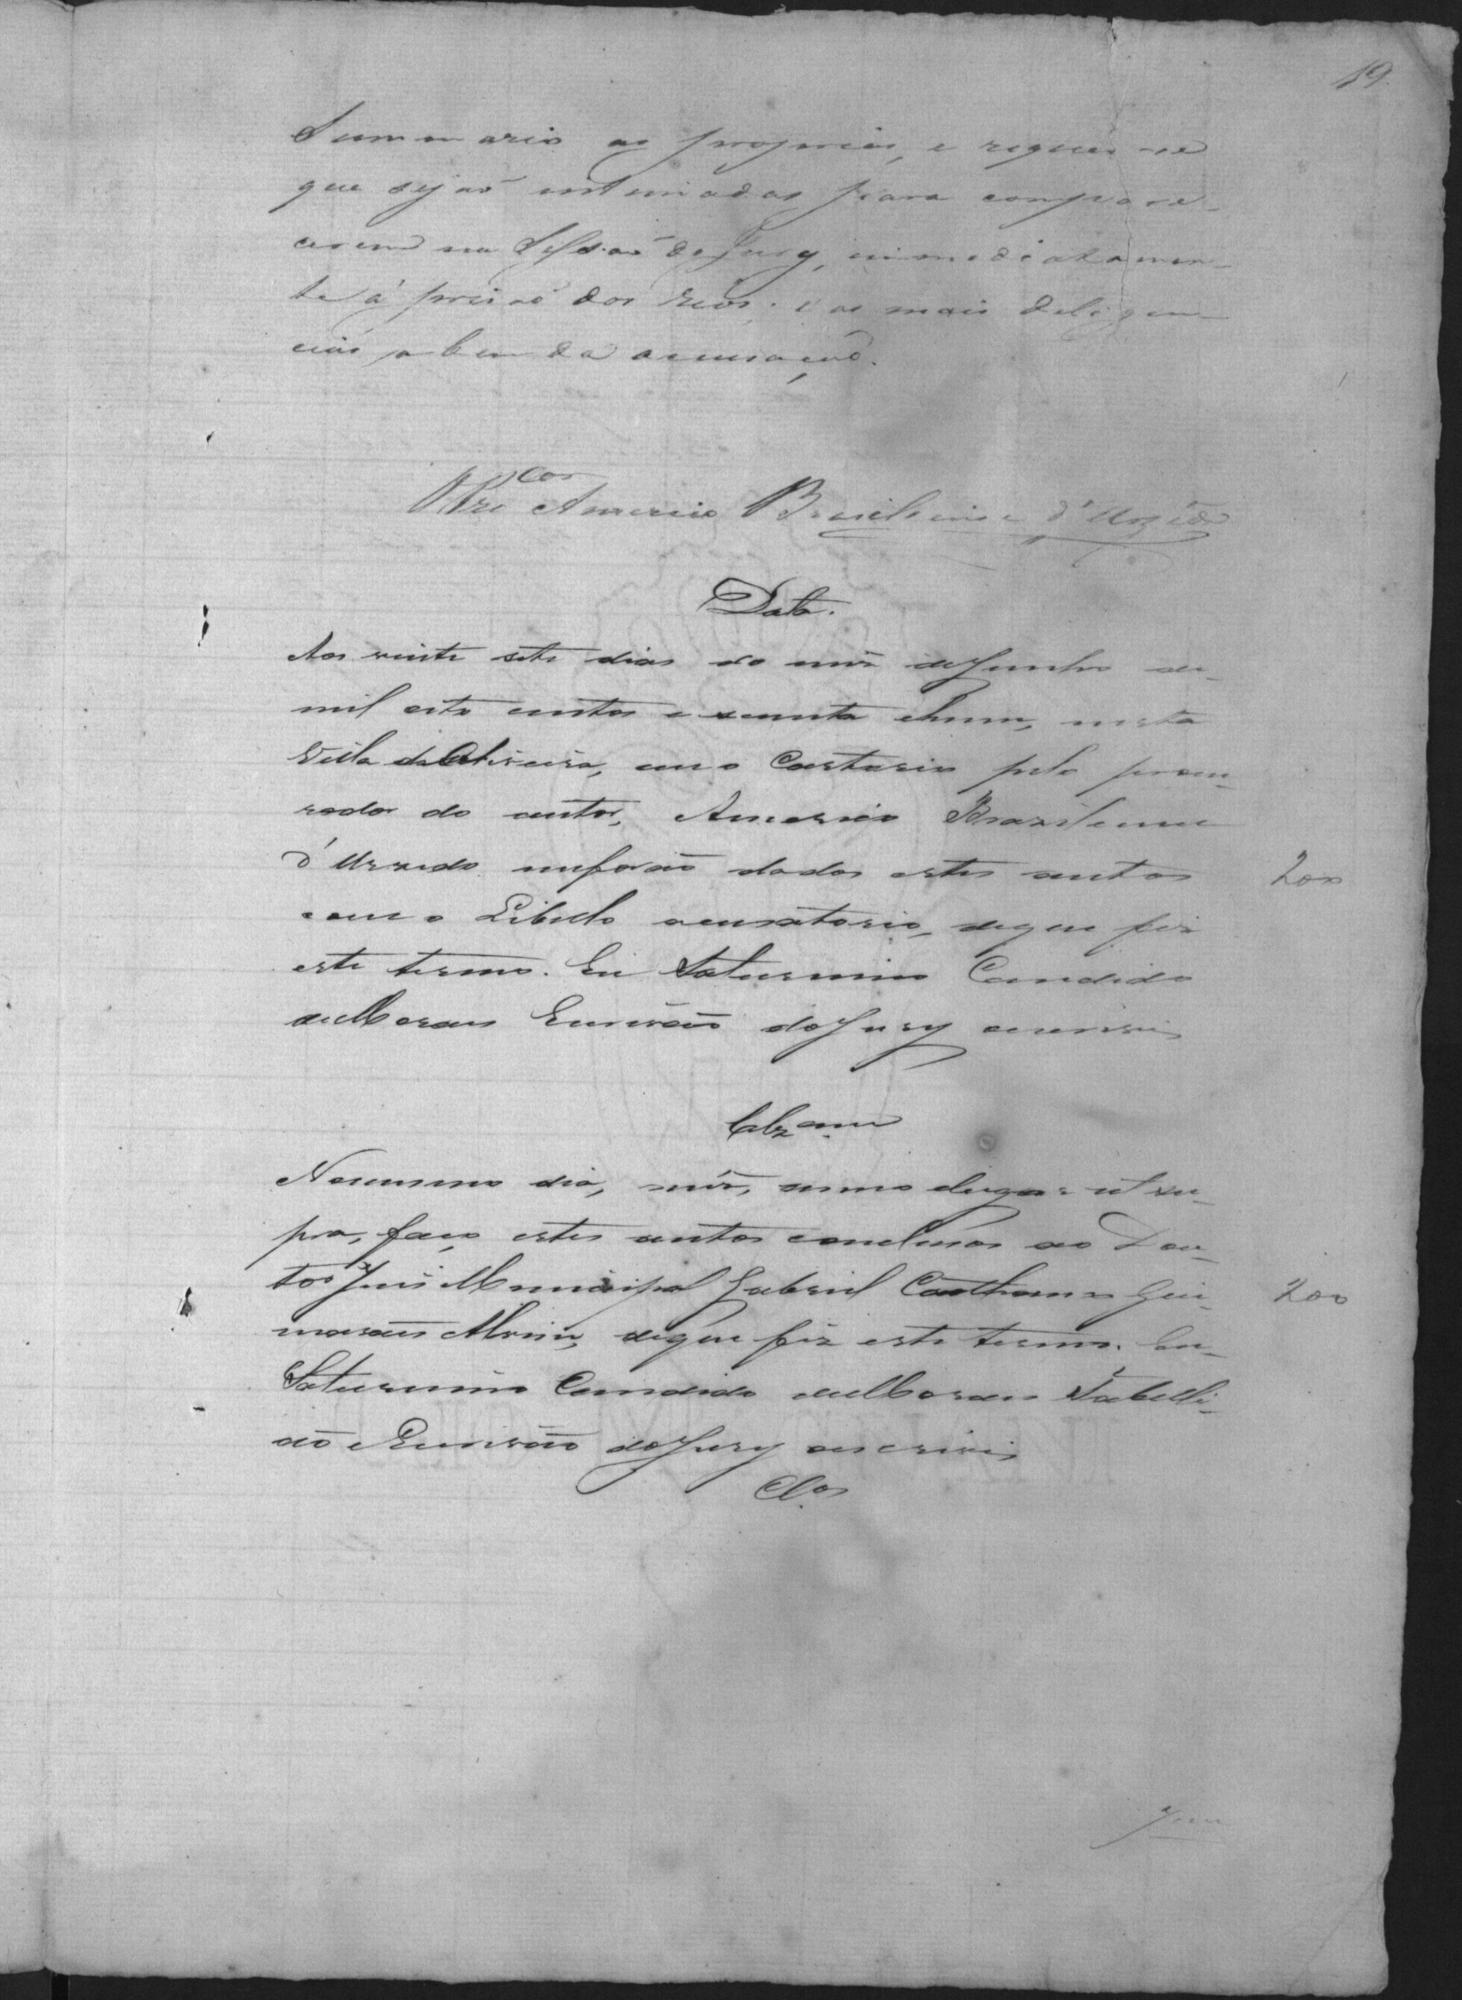 19.
Summario as proprias, e requer-se
que sejaõ intimadas para compare-
cerem na Sessaõ do Jury, immediatamen-
te á prisaõ dos Réos; e as mais deligen-
cias a bem da accusaçaõ.
Americo Brasiliense d'
Data.
Aos vinte sete dias do mês de Junho de
mil oito centos e secenta e hum, nesta
Villa de Oliveira, em o Cartorio pelo procu-
rador do autor, Americo Braziliense
d' me foraõ dados estes autos
200
com o Libello acusatorio, de que fiz
este termo. Eu Saturnino Candido
de Moraes Escrivaõ do Jury o escrivi
Clzam
No mesmo dia, mês, anno e lugar ut su-
pra, faço estes autos conclusos ao Dou-
tor Juis Municipal Gabriel Gui-
200
maraes de que fiz este termo. Eu
Saturnino Candido de Moraes Tabelli-
aõ e Escrivaõ do Jury os escrivi
Clos